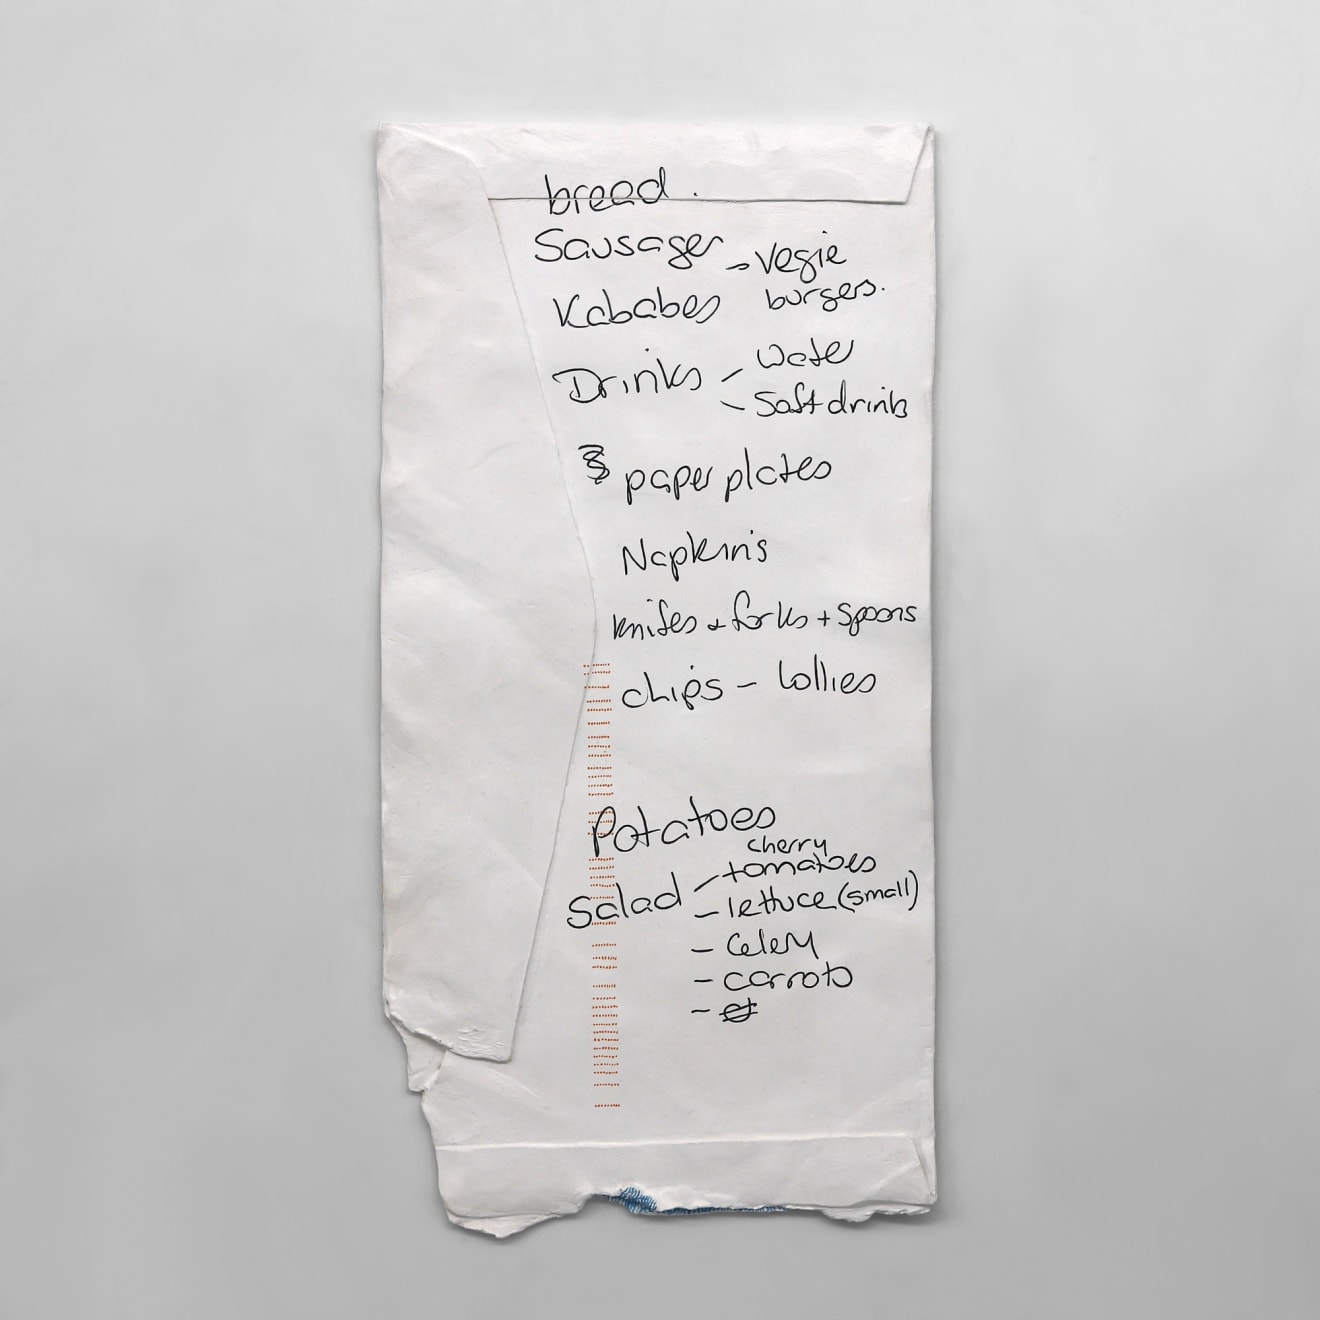 bread.
Sausages - Vegie
burgers.
Kababes
Drinks - Water
- Soft drinks
paper plates
Napkins
knifes + forks + spoons
chips - lollies
Potatoes
cherry
Salad - tomatoes
- lettuce (small)
- Celery
- carrots
-